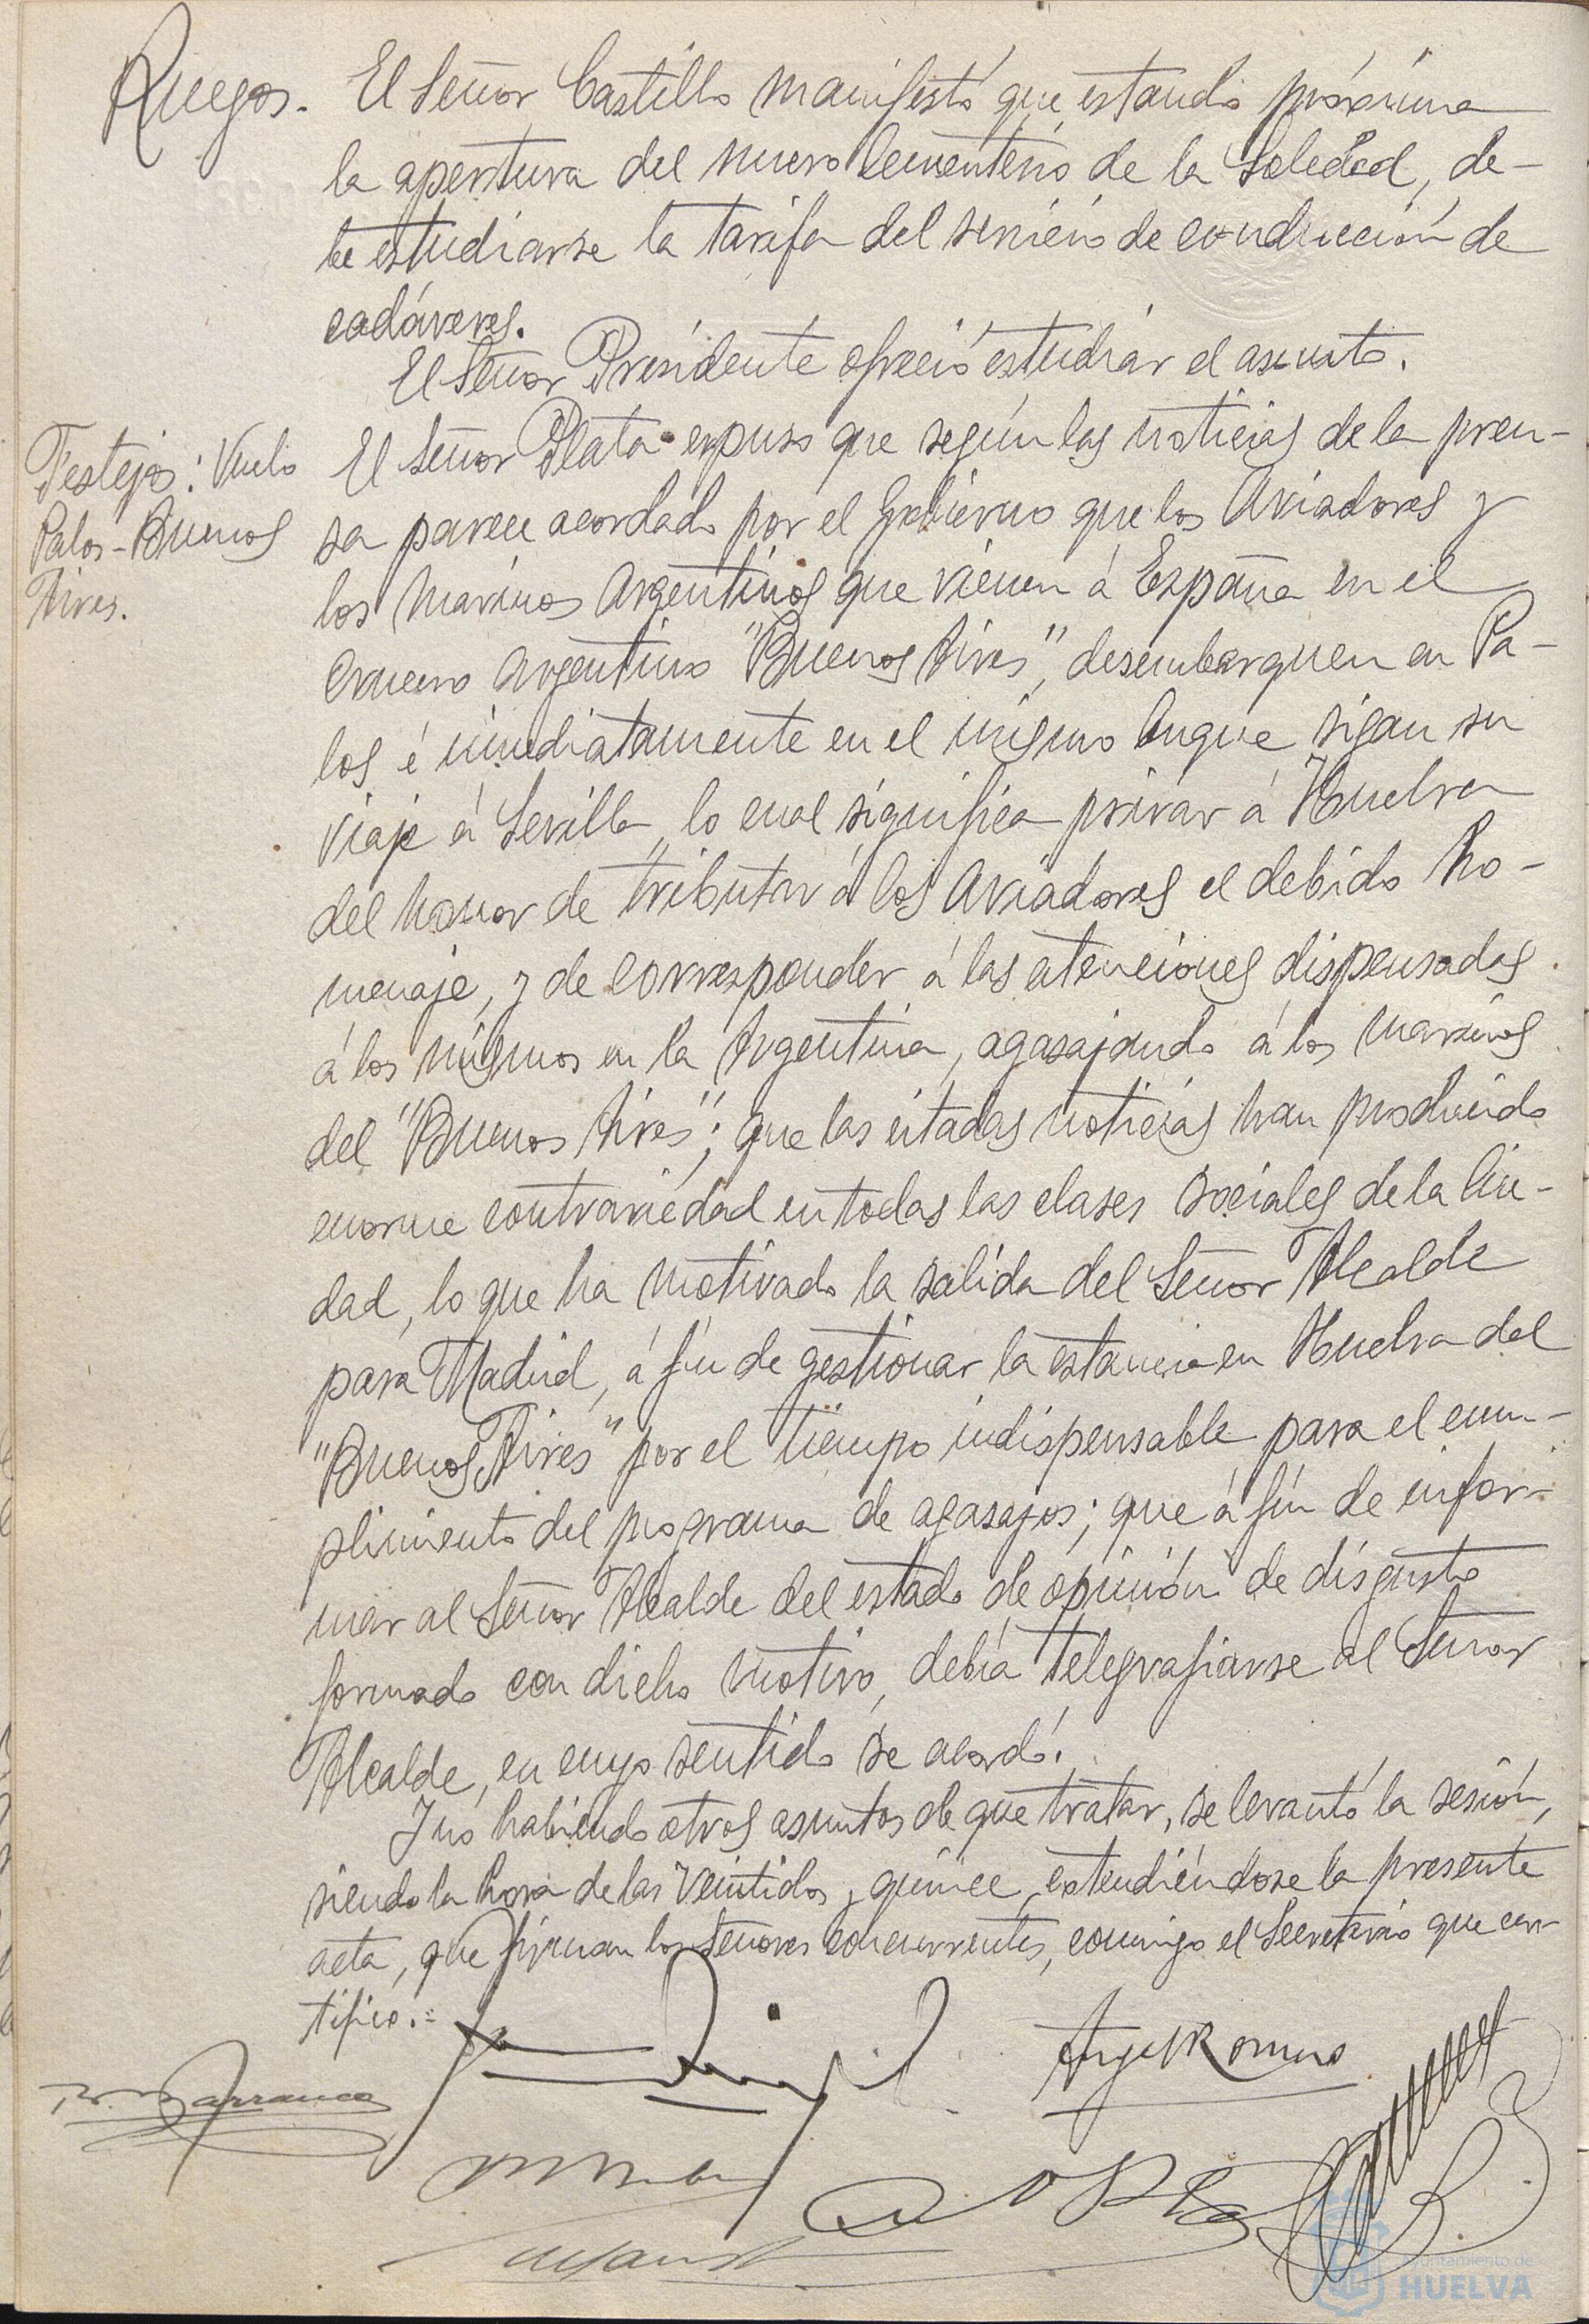 Ruegos. El Señor Castillo manifestó que, estando próxima
la apertura del nuevo Cementerio de la Soledad, de-
be estudiarse la tarifa del servicio de conducción de
cadáveres.
El Señor Presidente ofreció estudiar el asunto.
Festejos: Vuelo
Palos-Buenos
Aires.
El Señor Plata expuso que según las noticias de la pren-
sa parece acordado por el Gobierno que los Aviadores y
los marinos Argentinos que vienen á España en el
crucero Argentino "Buenos Aires", desembarquen en Pa-
los é inmediatamente en el mismo buque sigan su
viaje á Sevilla, lo cual significa privar á Huelva
del honor de tributar á los Aviadores el debido ho-
menaje, y de corresponder á las atenciones dispensadas
á los mismos en la Argentina, agasajando á los marinos
del "Buenos Aires"; que las citadas noticias han producido
enorme contrariedad en todas las clases sociales de la Ciu-
dad, lo que ha motivado la salida del Señor Alcalde
para Madrid, á fín de gestionar la estancia en Huelva del
"Buenos Aires" por el tiempo indispensable para el cum-
plimiento del programa de agasajos; que á fín de infor-
mar al Señor Alcalde del estado de opinión de disgusto
formado con dicho motivo, debía telegrafiarse al Señor
Alcalde, en cuyo sentido se acordó.
Y no habiendo otros asuntos de que tratar, se levantó la sesión,
siendo la hora de las veintidos y quince, extendiéndose la presente
acta, que firman los Señores concurrentes, conmigo el Secretario que cer-
tifico.=
Barranco
Angel Romero
Ayuntamiento de
HUELVA